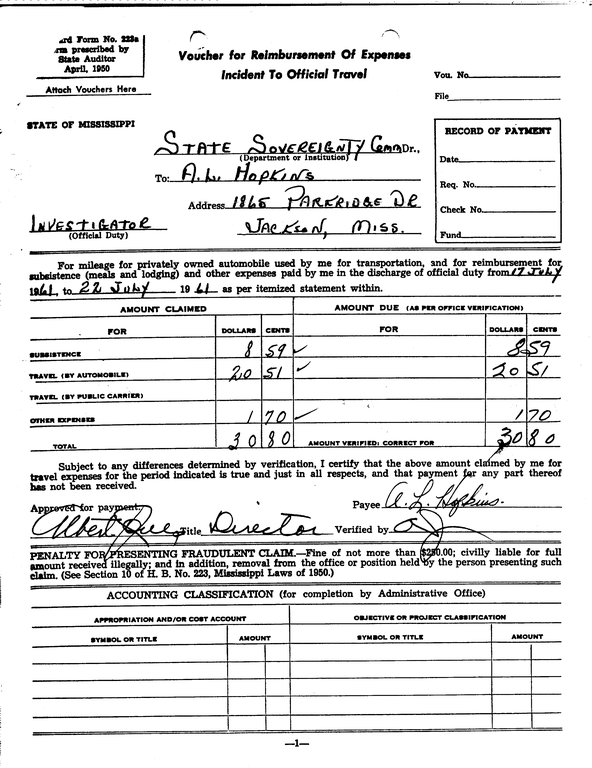 ard Form No. 223a
rm prescribed by
State Auditor
April, 1950
Attach Vouchers Here
Voucher for Reimbursement Of Expenses
Incident To Official Travel
Vou. No.
File
STATE OF MISSISSIPPI
STATE SOVEREIGNTY Comm Dr.,
(Department or Institution)
To: A. L. HOPKINS
Address 1865 PARKRIDGE DR
JACKSON, MISS.
INVESTIGATOR
(Official Duty)
RECORD OF PAYMENT
Date
Req. No.
Check No.
Fund
For mileage for privately owned automobile used by me for transportation, and for reimbursement for
subsistence (meals and lodging) and other expenses paid by me in the discharge of official duty from 17 JULY
1961, to 22 JULY 1961 as per itemized statement within.
AMOUNT CLAIMED AMOUNT DUE (AS PER OFFICE VERIFICATION)
FOR DOLLARS CENTS FOR DOLLARS CENTS
SUBSISTENCE 8 59 ✓ 8 59
TRAVEL (BY AUTOMOBILE) 20 51 ✓ 20 51
TRAVEL (BY PUBLIC CARRIER)
OTHER EXPENSES 1 70 ✓ 1 70
TOTAL 30 80 AMOUNT VERIFIED: CORRECT FOR 30 80
Subject to any differences determined by verification, I certify that the above amount claimed by me for
travel expenses for the period indicated is true and just in all respects, and that payment for any part thereof
has not been received.
Approved for payment: Payee A. L. Hopkins.
Albert Title Director Verified by
PENALTY FOR PRESENTING FRAUDULENT CLAIM.—Fine of not more than $250.00; civilly liable for full
amount received illegally; and in addition, removal from the office or position held by the person presenting such
claim. (See Section 10 of H. B. No. 223, Mississippi Laws of 1950.)
ACCOUNTING CLASSIFICATION (for completion by Administrative Office)
APPROPRIATION AND/OR COST ACCOUNT OBJECTIVE OR PROJECT CLASSIFICATION
SYMBOL OR TITLE AMOUNT SYMBOL OR TITLE AMOUNT
—1—